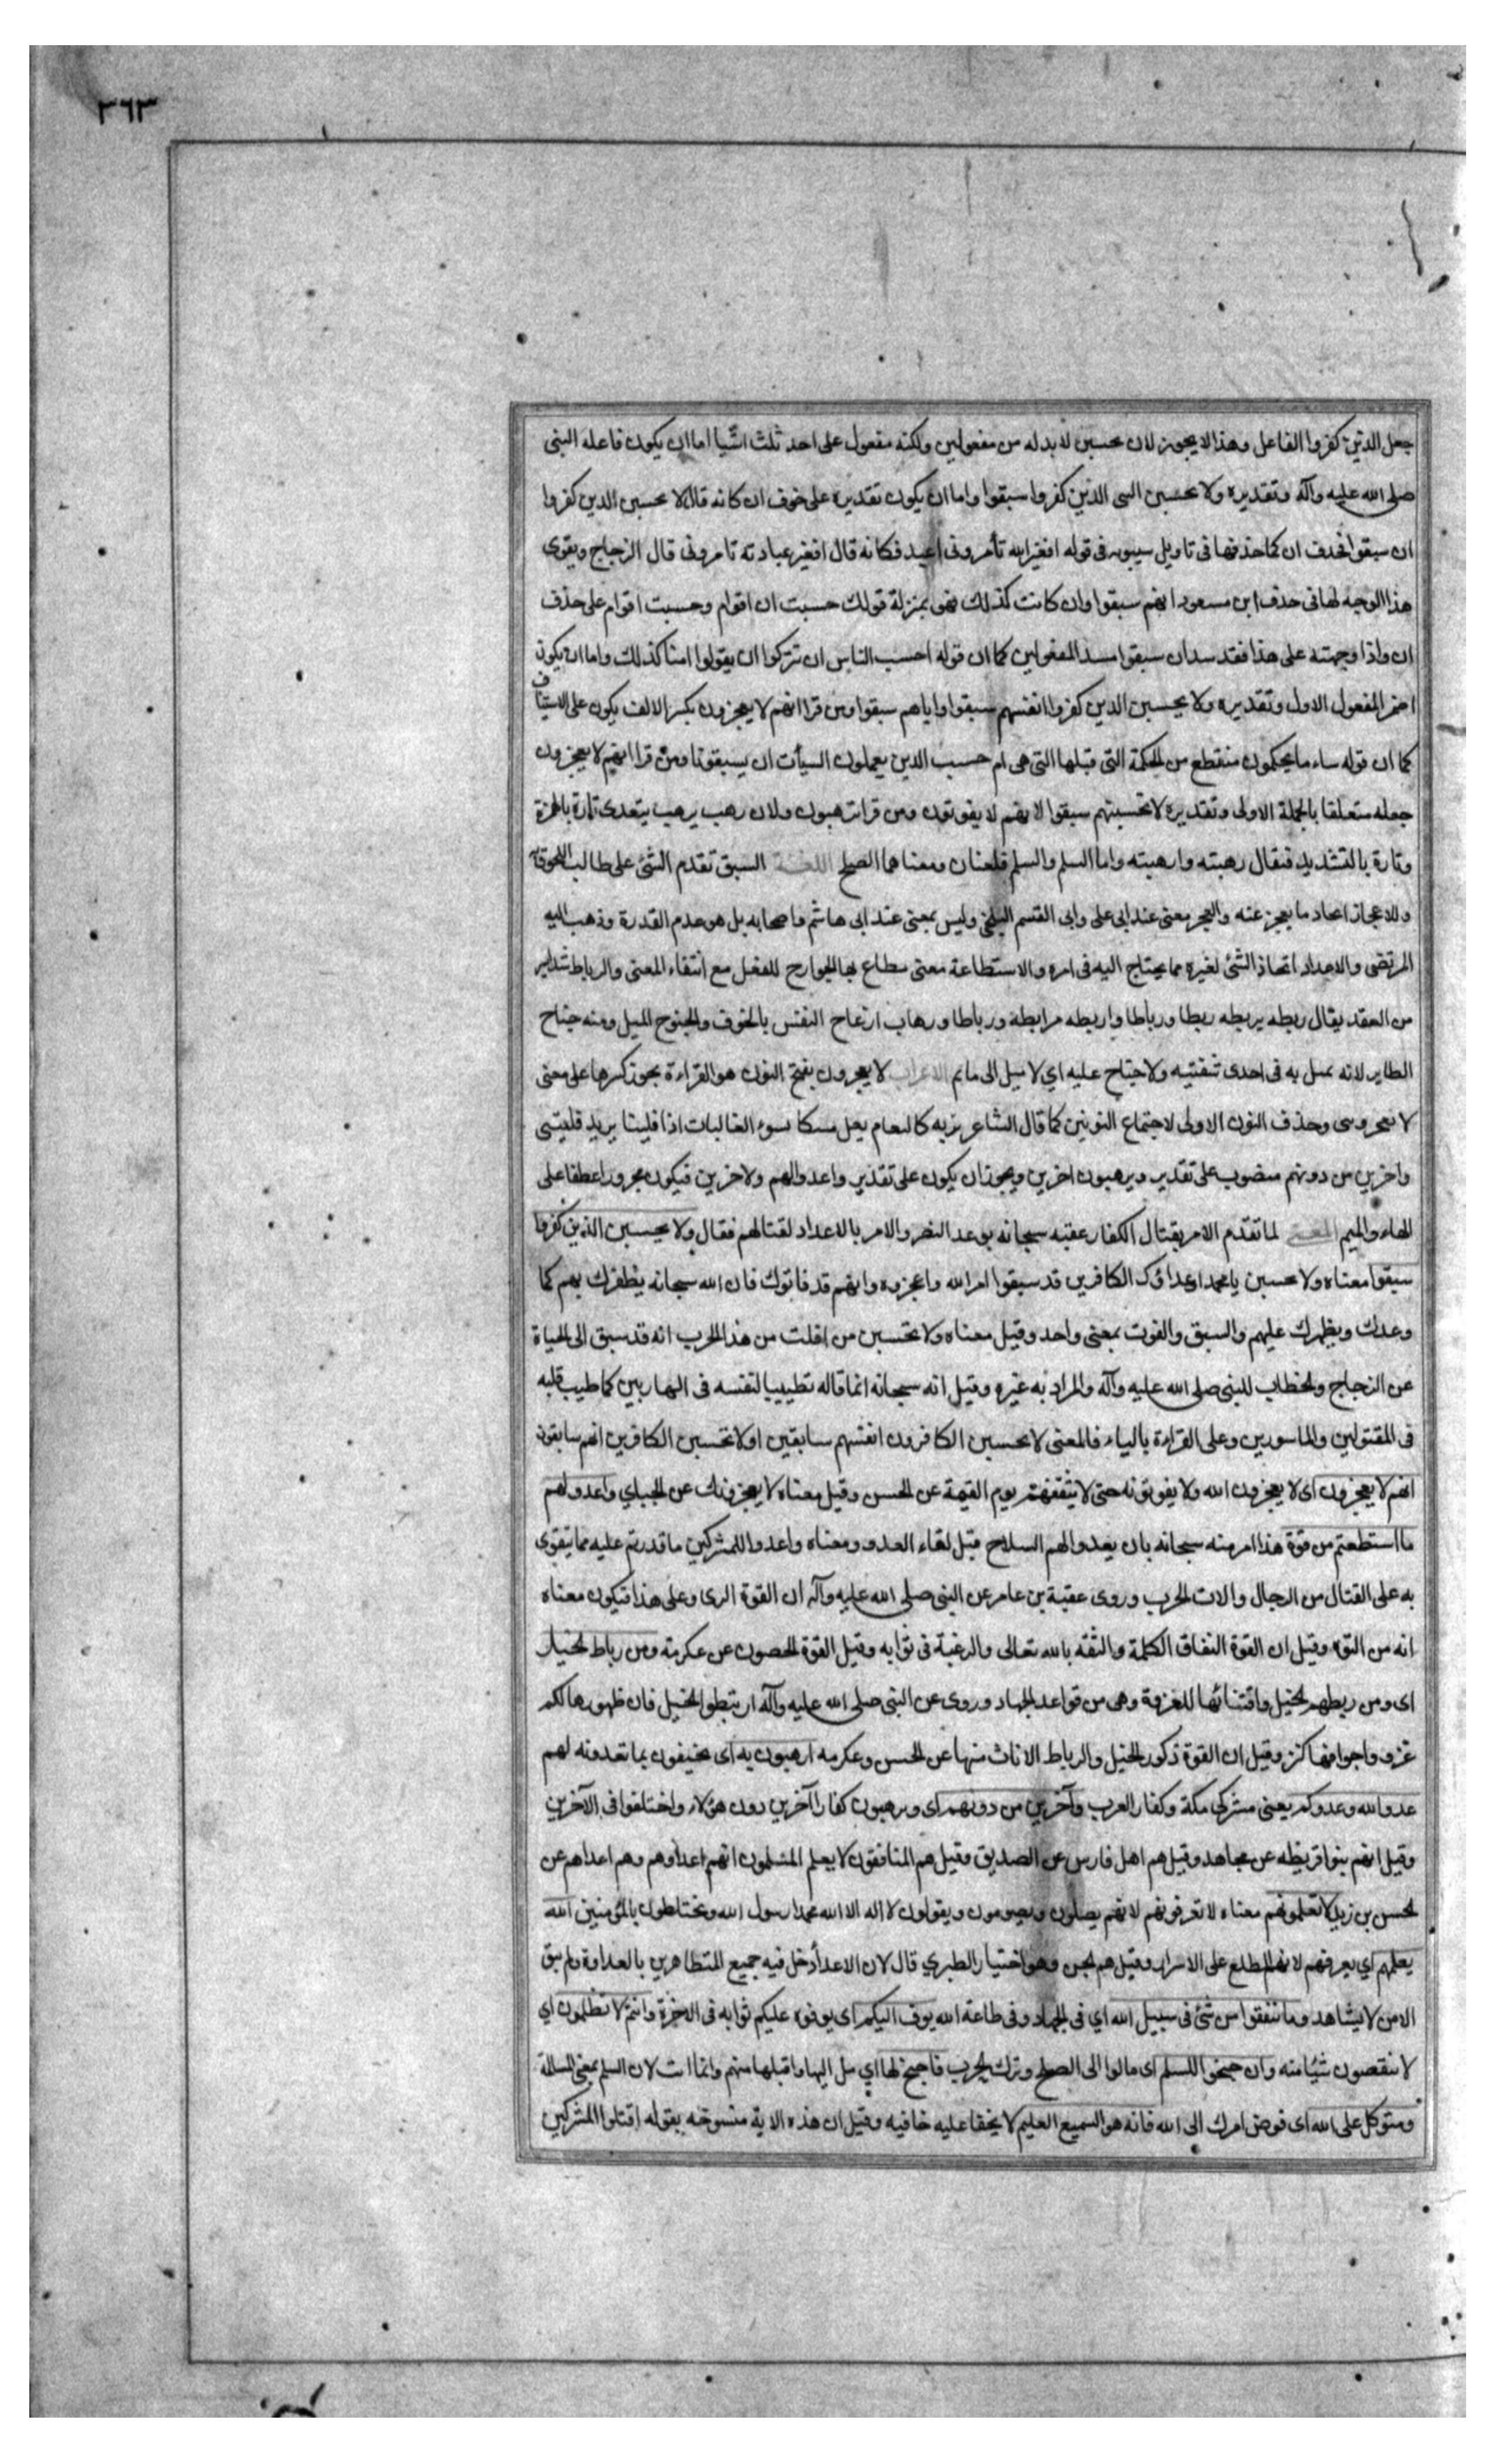 ٣٦٣
جعل الذين كفروا الفاعل وهذا لا يجوز لان يحسبن لابد له من مفعولين ولكنه مفعول على احد ثلث اشيا اما ان يكون فاعله النبى
صلى الله عليه وآله وتقديره ولا يحسبن النبى الذين كفروا سبقوا واما ان يكون تقديره على خوف ان كانه قال لا يحسبن الدين كفروا
ان سبقوا فحذف ان كما حذفها فى تاويل سيبويه فى قوله افغير الله تأمرونى اعبد فكانه قال افغير عبادته تامرونى قال الزجاج ويقوى
هذا الوجه لها فى حذف ابن مسعود انهم سبقوا وان كانت كذلك فهى بمنزلة قولك حسبت ان اقوام وحسبت اقوام على حذف
ان واذا وجهته على هذا فقد سد ان سبقوا مسد المفعولين كما ان قوله احسب الناس ان تتركوا ان يقولوا امنا كذلك واما ان يكون
اضمر المفعول الاول وتقديره ولا يحسبن الدين كفروا انفسهم سبقوا واياهم سبقوا ومن قرا انهم لا يعجزون بكسر الالف يكون على الاستيناف
كما ان قوله ساء ما يحكمون منقطع من الحكمة التى قبلها التى هى ام حسب الدين يعملون السيأت ان يسبقونا ومن قرا انهم لا يعجزون
جعله متعلقا بالجملة الاولى وتقديره لا تحسبنهم سبقوا لانهم لا يفوتون ومن قرا ترهبون ولان رهب يرهب يتعدى تارة بالهمزة
وتارة بالتشديد فيقال رهبته وارهبته واما السلم والسلم فلغتان ومعناهما الصلح اللغة السبق تقدم الشئ على طالب اللحوق به
وللاعجاز ايجاد ما يعجز عنه والعجز معنى عند ابى على وابى القسم البلخى وليس بمعنى عند ابى هاشم واصحابه بل هو عدم القدرة وذهب اليه
المرتضى والاعداد اتخاذ الشئ لغيره مما يحتاج اليه فى امره والاستطاعة معنى سطاع بها الجوارح للفعل مع انتقاء المعنى والرباط شد ايسر
من العقد يقال ربطه يربطه ربطا ورباطا واربطه مرابطة ورباطا ورهاب ازعاج النفس بالخوف والجنوح الميل ومنه جناح
الطاير لانه يميل به فى احدى شقيه ولا جناح عليه اي لا ميل الى ماثم الاعراب لا يعجزون بفتح النون هو القراءة يجوز كسرها على معنى
لا يعجزونى وحذف النون الاولى لاجتماع النونين كما قال الشاعر تريه كالثغام يعل مسكا يسوء الفاليات اذا فلينا يريد فلينى
واخرين من دونهم منصوب على تقدير ويرهبون اخرين ويجوز ان يكون على تقدير واعدوا لهم ولاخرين فيكون مجرورا عطفا على
الهاء والميم المعنى لما تقدم الامر بقتال الكفار عقبه سبحانه بوعد النصر والامر بالاعداد لقتالهم فقال ولا يحسبن الذين كفروا
سبقوا معناه ولا تحسبن يا محمد اعداؤك الكافرين قد سبقوا امر الله واعجزوه وانهم قد فاتوك فان الله سبحانه يظفرك بهم كما
وعدك ويظهرك عليهم والسبق والفوت بمعنى واحد وقيل معناه ولا تحسبن من افلت من هذا الحرب انه قد سبق الى الحياة
عن الزجاج والخطاب للنبى صلى الله عليه وآله والمراد به غيره وقيل انه سبحانه انما قاله تطييبا لنفسه فى الهاربين كما طيب قلبه
فى المقتولين والماسورين وعلى القراءة بالياء فالمعنى لا يحسبن الكافرون انفسهم سابقين او لا تحسبن الكافرين انهم سابقون
انهم لا يعجزون اى لا يعجزون الله ولا يفوتونه حتى لا يثقفنهم يوم القيمة عن الحسن وقيل معناه لا يعجزونك عن الجباي واعدوا لهم
ما استطعتم من قوة هذا امر منه سبحانه بان يعدوا لهم السلاح قبل لقاء العدو ومعناه واعدوا للمشركين ما قدرتم عليه مما يتقوى
به على القتال من الرجال والات الحرب وروى عقبة بن عامر عن النبى صلى الله عليه وآله ان القوة الرمى وعلى هذا فيكون معناه
انه من القوة وقيل ان القوة اتفاق الكلمة والثقة بالله تعالى والرغبة فى ثوابه وقيل القوة الحصون عن عكرمة ومن رباط الخيل
اى ومن ربطهم الخيل واقتنائها للغزو وهى من قواعد الجهاد وروى عن النبى صلى الله عليه وآله ارتبطوا الخيل فان ظهورها لكم
عزو واجوافها كنز وقيل ان القوة ذكور الخيل والرباط الاناث منها عن الحسن وعكرمه ترهبون به اى تخيفون بما تعدونه لهم
عدو الله وعدوكم يعنى مشركى مكة وكفار العرب وآخرين من دونهم اى وترهبون كفارا آخرين دون هؤلاء واختلفوا فى الآخرين
وقيل انهم بنوا قريظه عن مجاهد وقيل هم اهل فارس عن الصديق وقيل هم المنافقون لا يعلم المسلمون انهم اعداوهم وهم اعداهم عن
الحسن بن زيد لا تعلمونهم معناه لا تعرفونهم لانهم يصلون ويصومون ويقولون لا اله الا الله محمد رسول الله ويختلطون بالمؤمنين الله
يعلمهم اي يعرفهم لانه المطلع على الاسرار وقيل هم الجن وهو اختيار الطبري قال لان الاعدأ دخل فيه جميع المتظاهرين بالعداوة ولم يبق
الا من لا يشاهد وما تنفقوا من شئ فى سبيل الله اي فى الجهاد وفى طاعة الله يوف اليكم اى يوفون عليكم ثوابه فى الاخرة وانتم لا تظلمون اي
لا تنقصون شيئا منه وان جنحوا للسلم اى مالوا الى الصلح وترك الحرب فاجنح لها اي مل اليها واقبلها منهم وانما انث لان السلم بمعنى المسالمة
وتتوكل على الله اى فوض امرك الى الله فانه هو السميع العليم لا يخفا عليه خافيه وقيل ان هذه الاية منسوخه بقوله اقتلوا المشركين